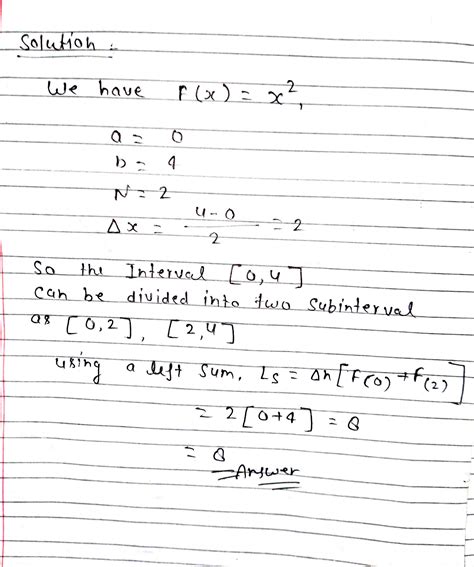 Solution :
We have F(x) = x²,
a = 0
b = 4
N = 2
Δx = (4-0)/2 = 2
So the Interval [0,4]
can be divided into two subinterval
as [0,2], [2,4]
using a left sum, Ls = Δn[f(0) + f(2)]
= 2[0+4] = 8
= 8
Answer